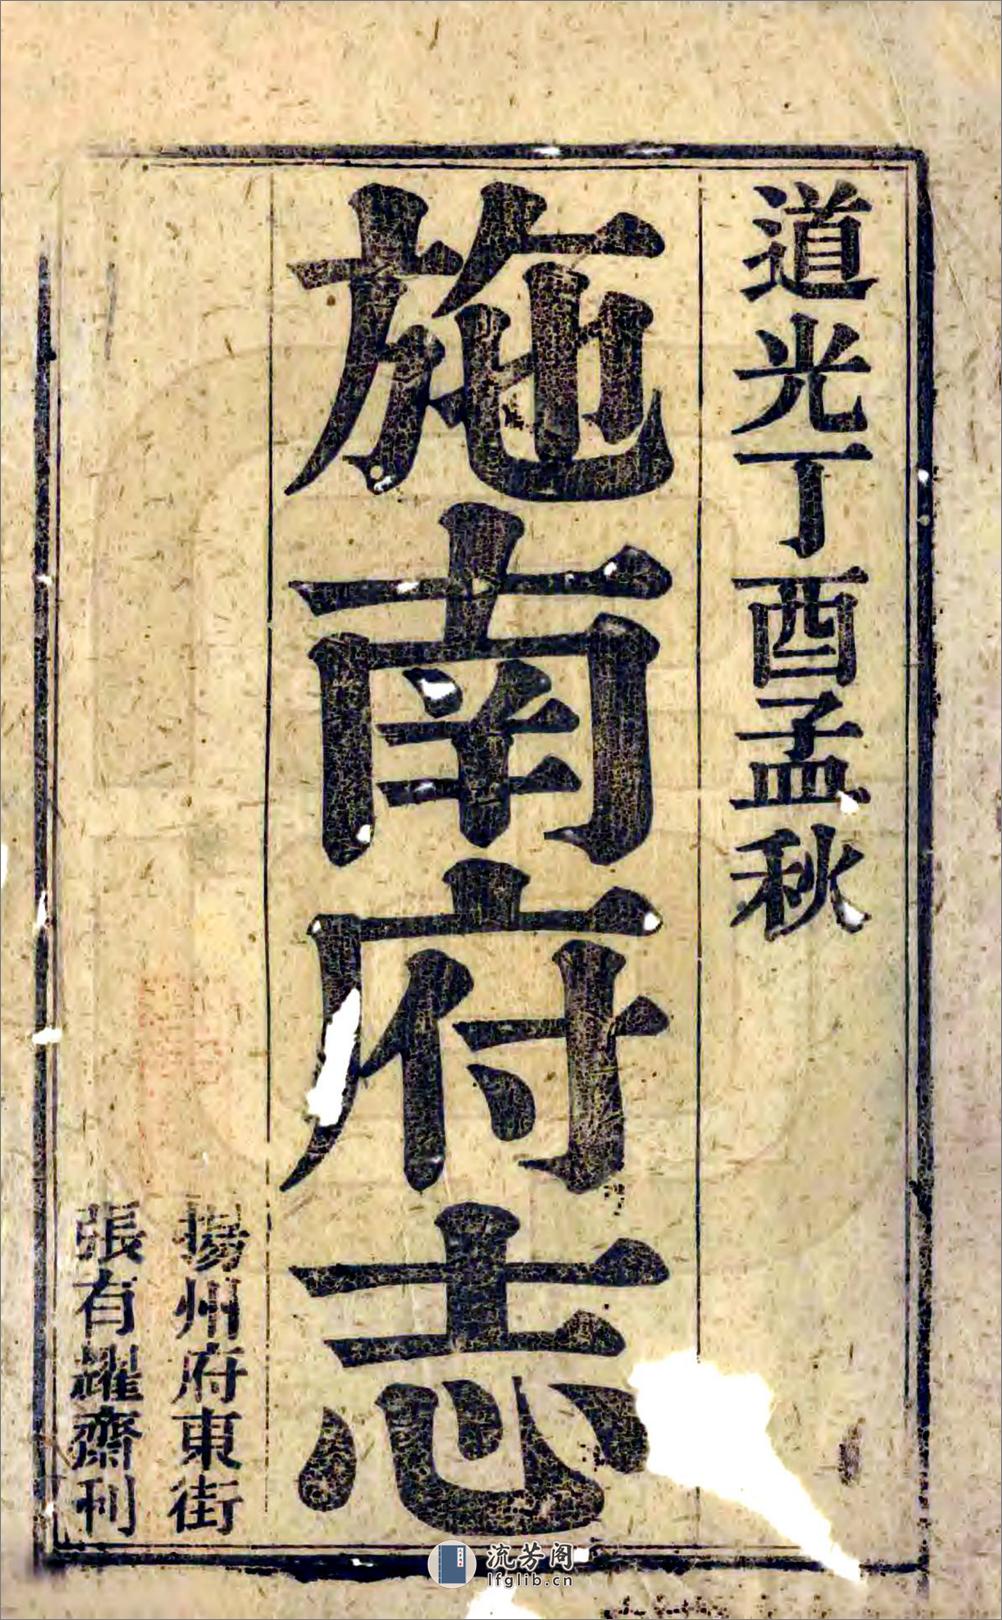 道光丁酉孟秋
施南府志
揚州府東街
張有耀齋刊
流芳阁
lfglib.cn